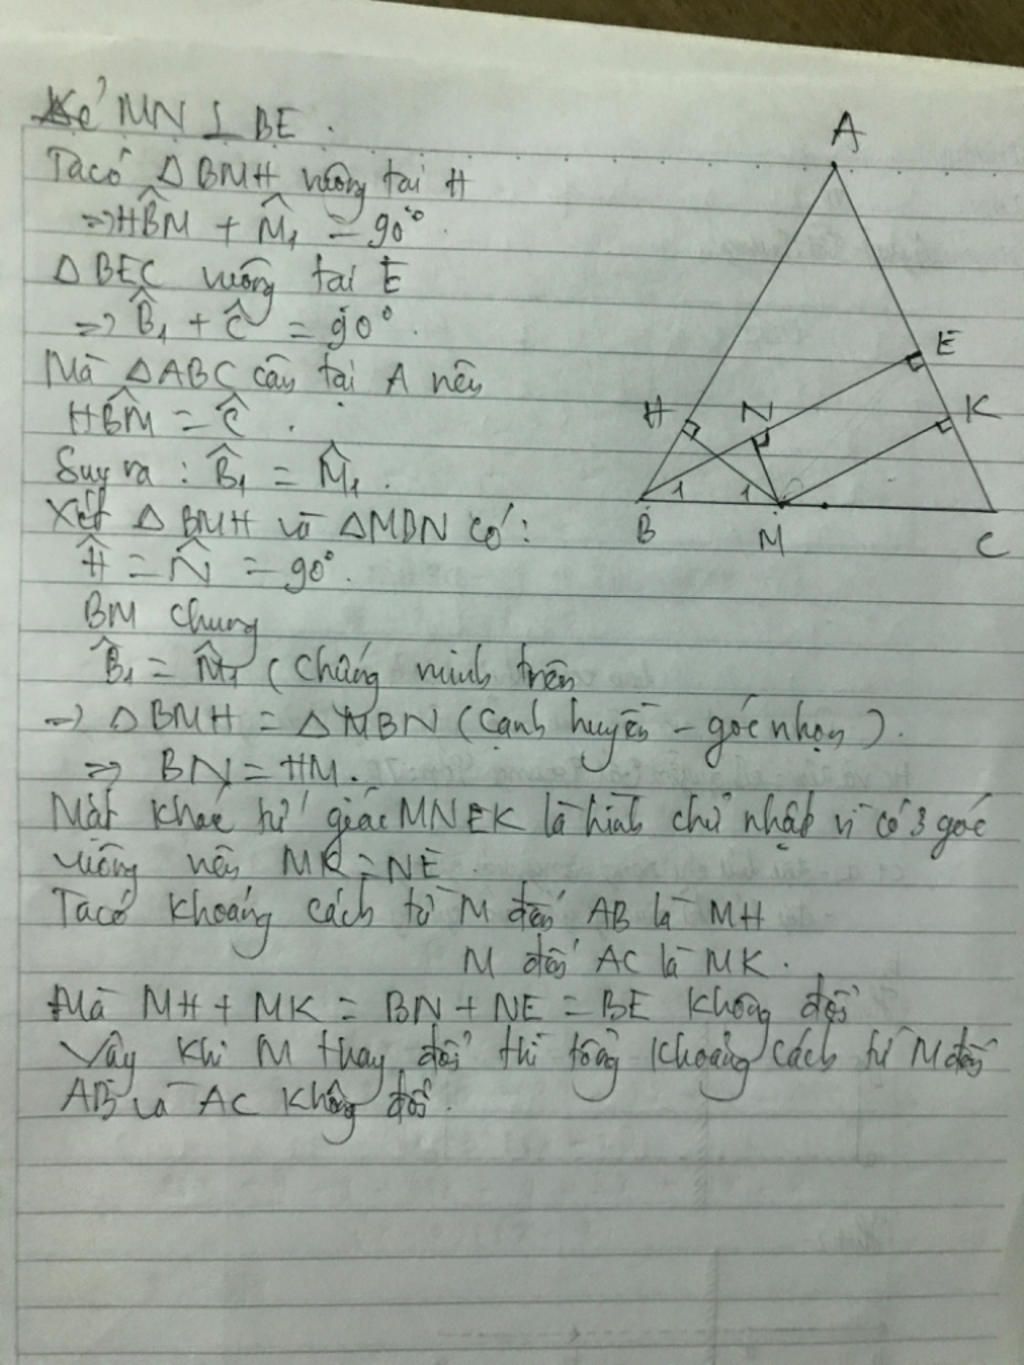 Kẻ MN ⊥ BE.
Ta có △BMH vuông tại H
=> HB̂M + M̂₁ = 90°.
△BEC vuông tại E
=> B̂₁ + Ĉ = 90°.
Mà △ABC cân tại A nên
HB̂M = Ĉ.
Suy ra : B̂₁ = M̂₁.
Xét △BMH và △MBN có:
Ĥ = N̂ = 90°.
BM chung
B̂₁ = M̂₁ (chứng minh trên
=> △BMH = △MBN (cạnh huyền - góc nhọn).
=> BN = HM.
Mặt khác tứ giác MNEK là hình chữ nhật vì có 3 góc
vuông nên MK = NE
Ta có khoảng cách từ M đến AB là MH
M đến AC là MK.
Mà MH + MK = BN + NE = BE không đổi
Vậy khi M thay đổi thì tổng khoảng cách từ M đến
AB và AC không đổi.
A
E
H
N
K
1
1
B
M
C